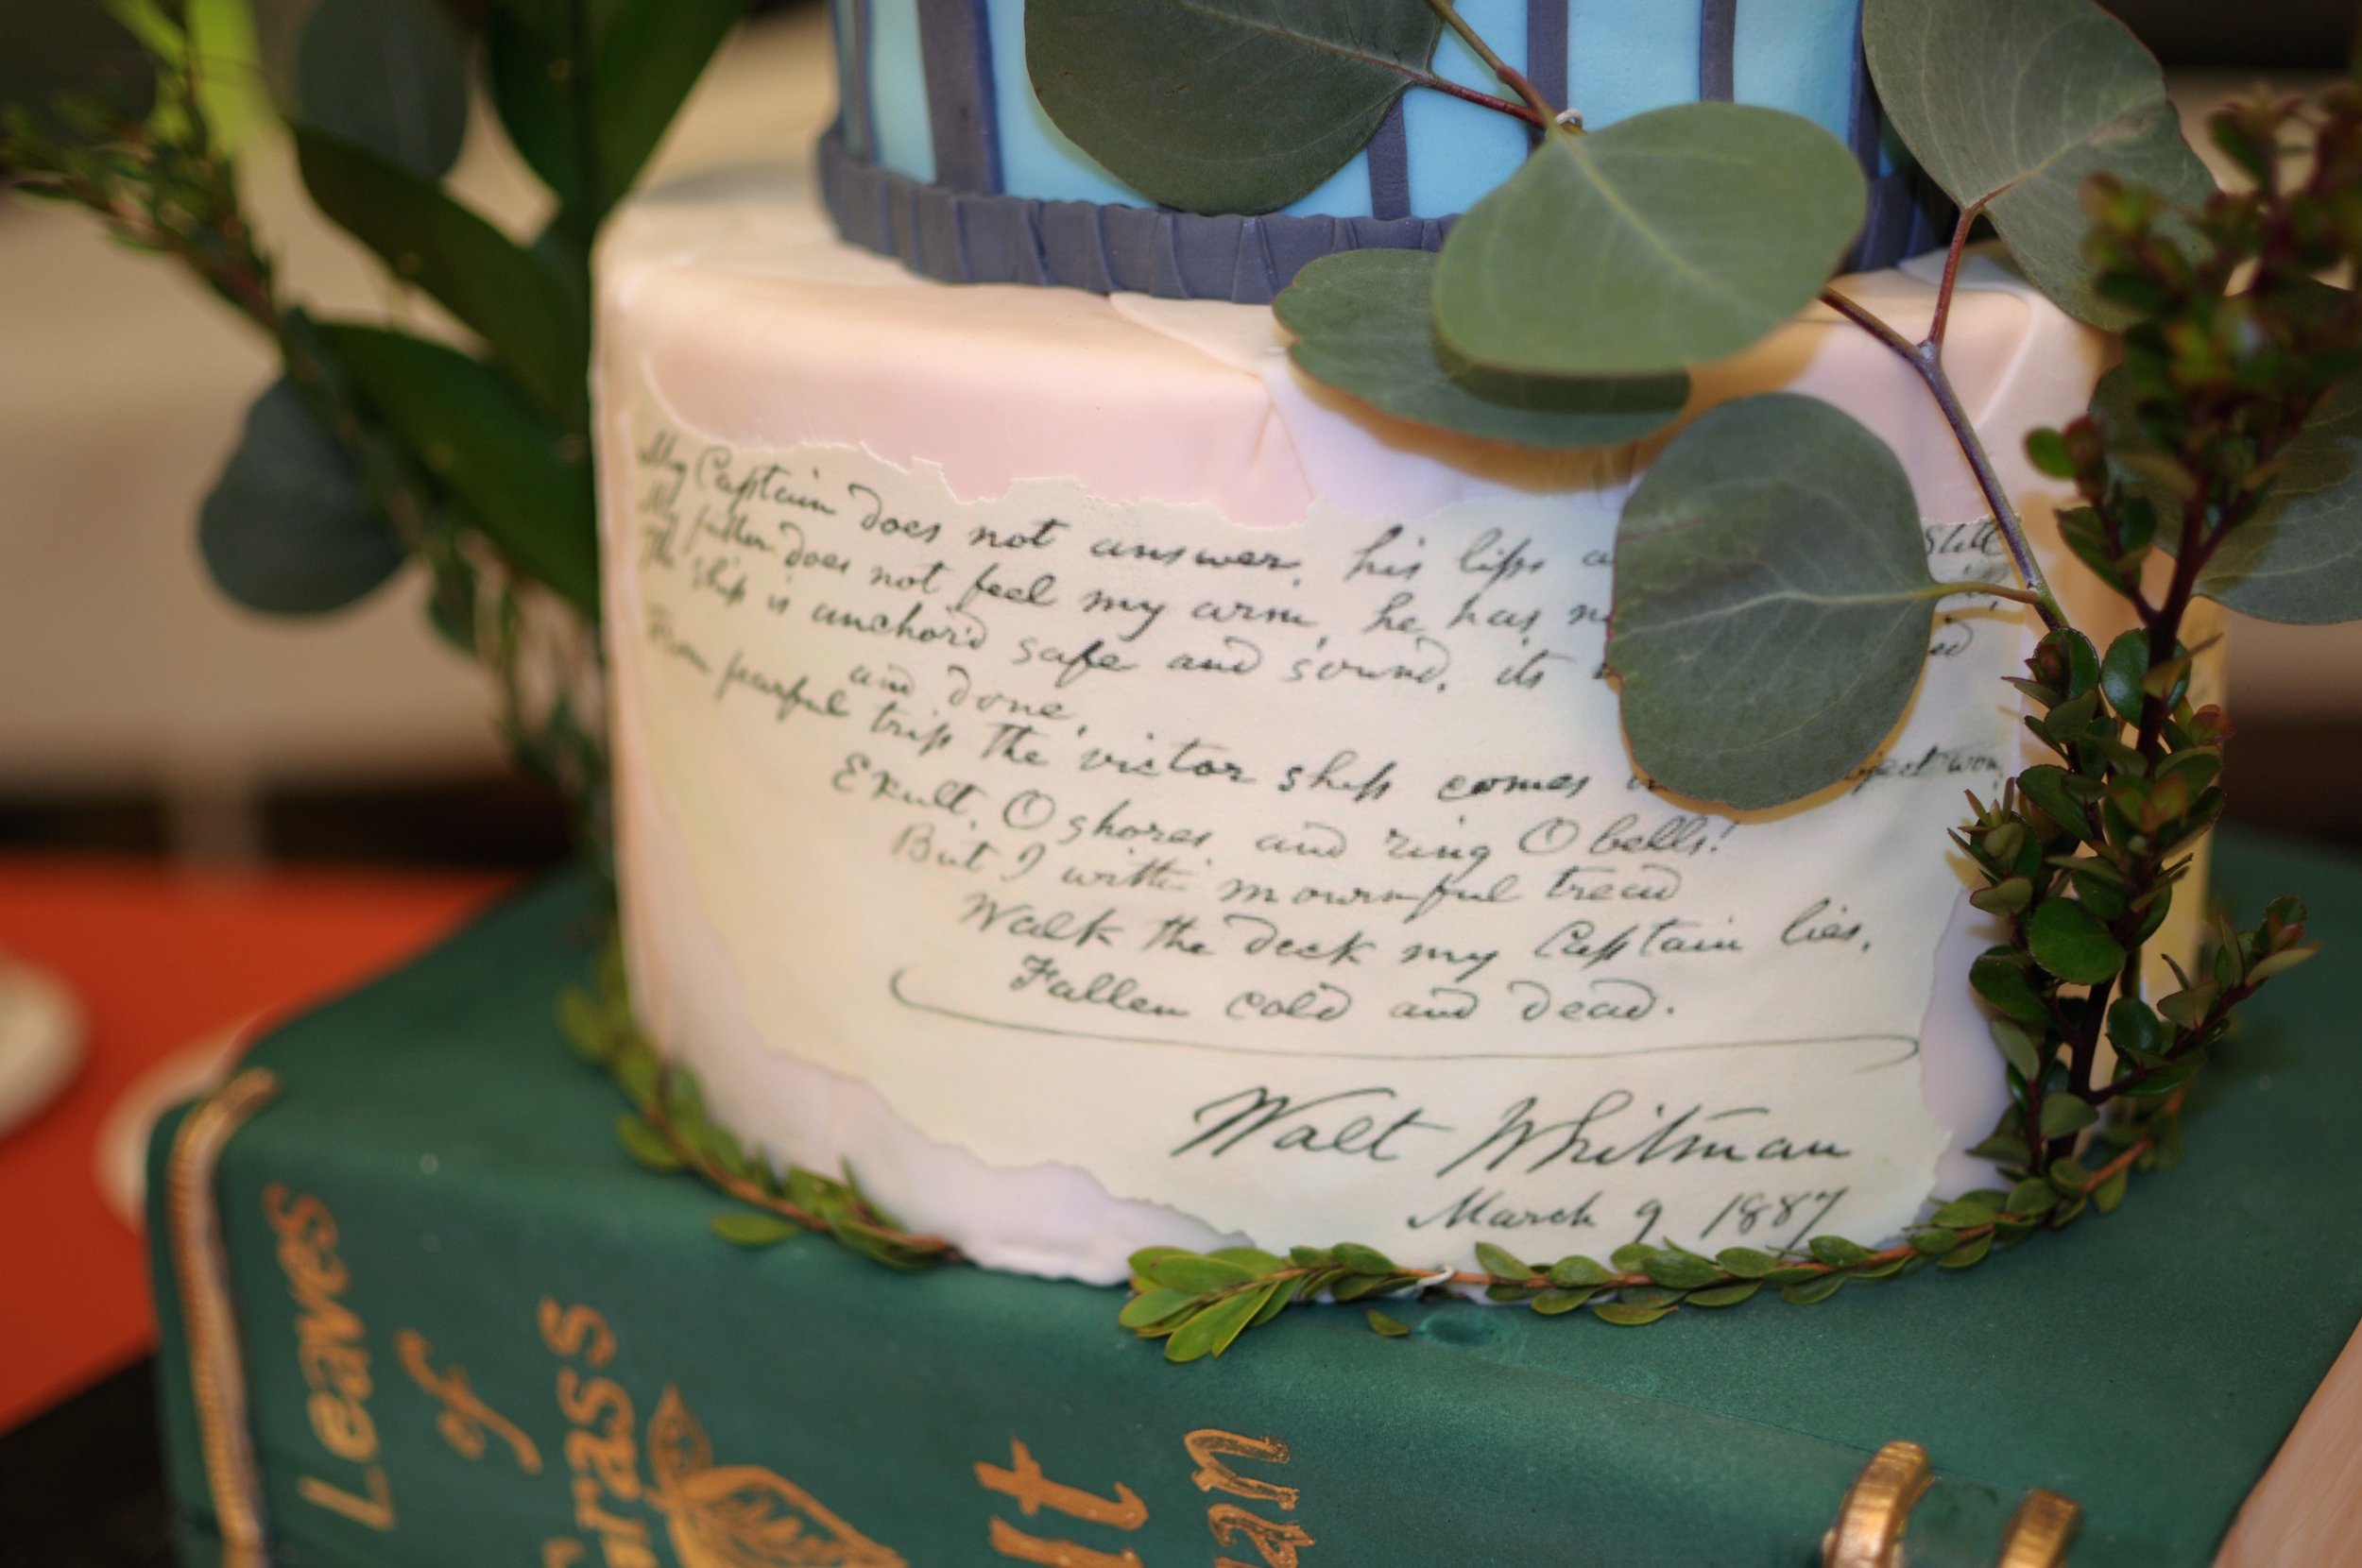 My Captain does not answer, his lips still
My father does not feel my arm, he has
The ship is anchor'd safe and sound, its
and done,
From fearful trip the victor ship comes won,
Exult, O shores and ring O bells!
But I with mournful tread
Walk the deck my Captain lies,
Fallen cold and dead.
Walt Whitman
March 9 1887
Leaves
of
Grass